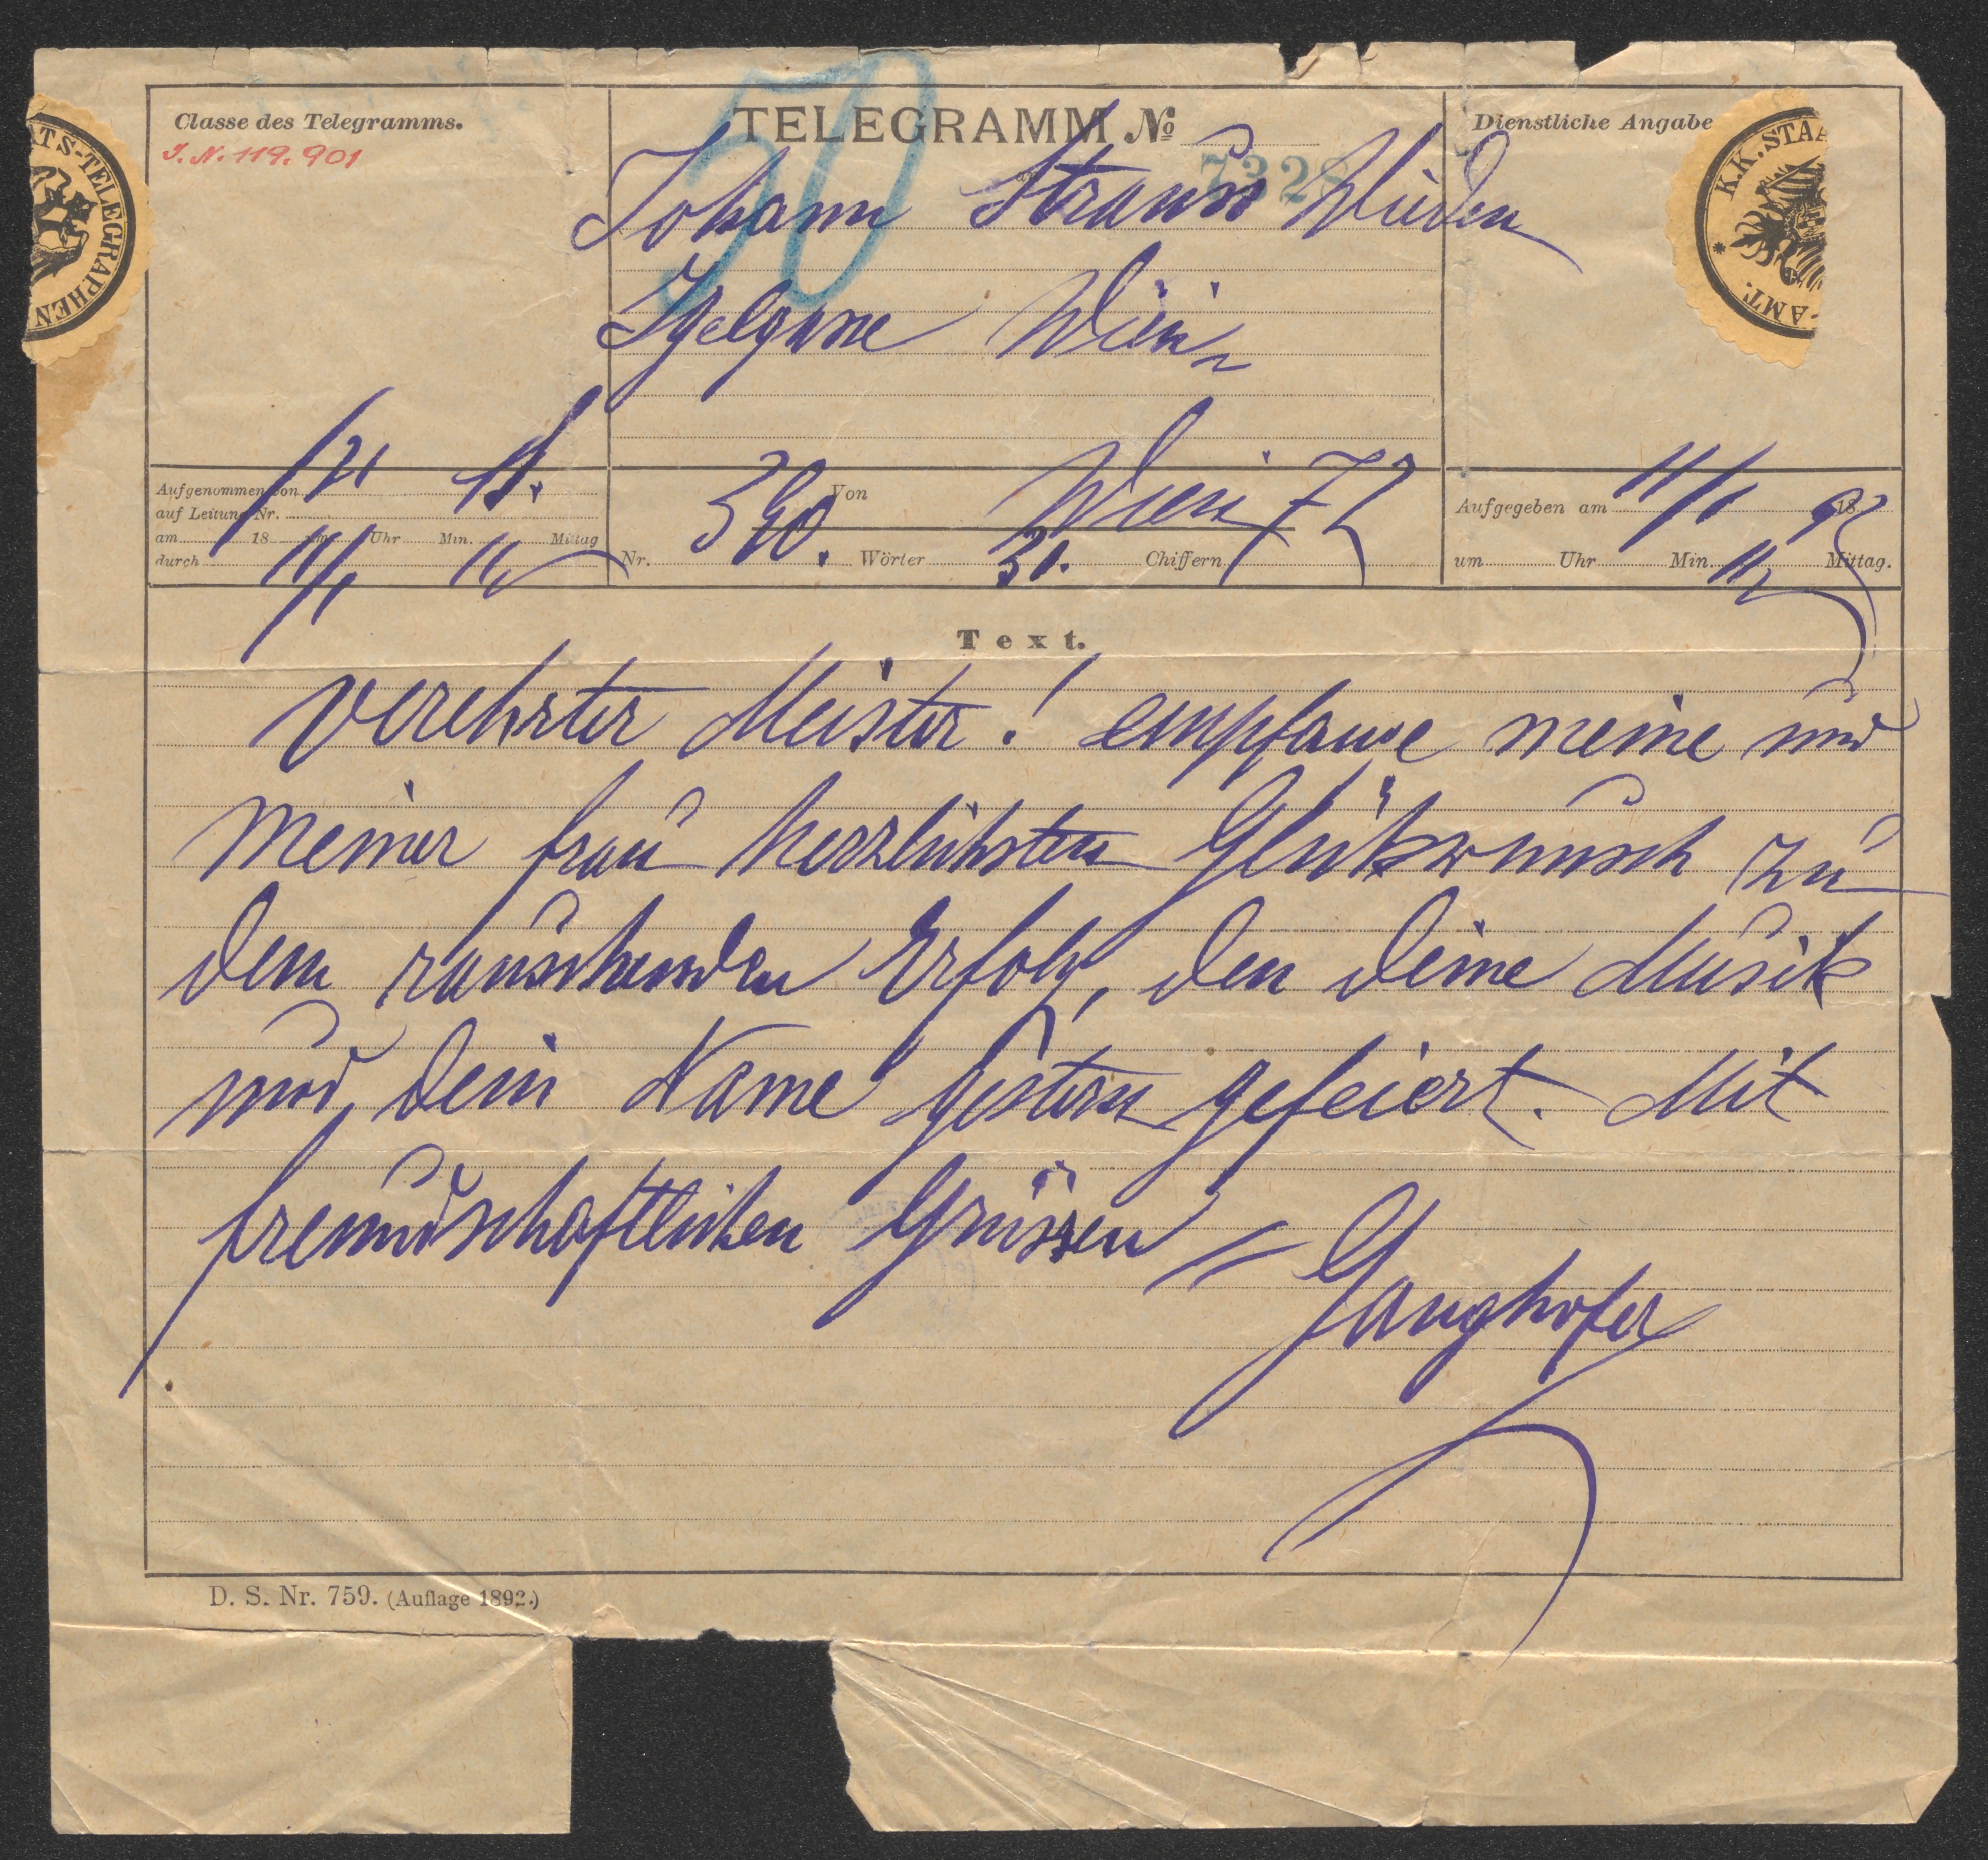 Classe des Telegramms.
TELEGRAMM No
Dienstliche Angabe
J. N. 119.901
50
7328
Johann Strauss Wieden
Igelgasse Wien
K.K. STAA
-AMT.
TS-TELEGRAPHEN
Aufgenommen von
auf Leitung Nr.
am 18 um Uhr Min. Mittag
durch
11/1
Von Wien 72
Nr. 390. Wörter 31. Chiffern
Aufgegeben am 11/1 18 93
um Uhr Min. Mittag.
Text.
Verehrter Meister! empfange meine und
meiner frau herzlichsten Glükwunsch zu
dem rauschenden Erfolg, den deine Musik
und dein Name gestern gefeiert. Mit
freundschaftlichen Grüssen =
Ganghofer
D. S. Nr. 759. (Auflage 1892.)